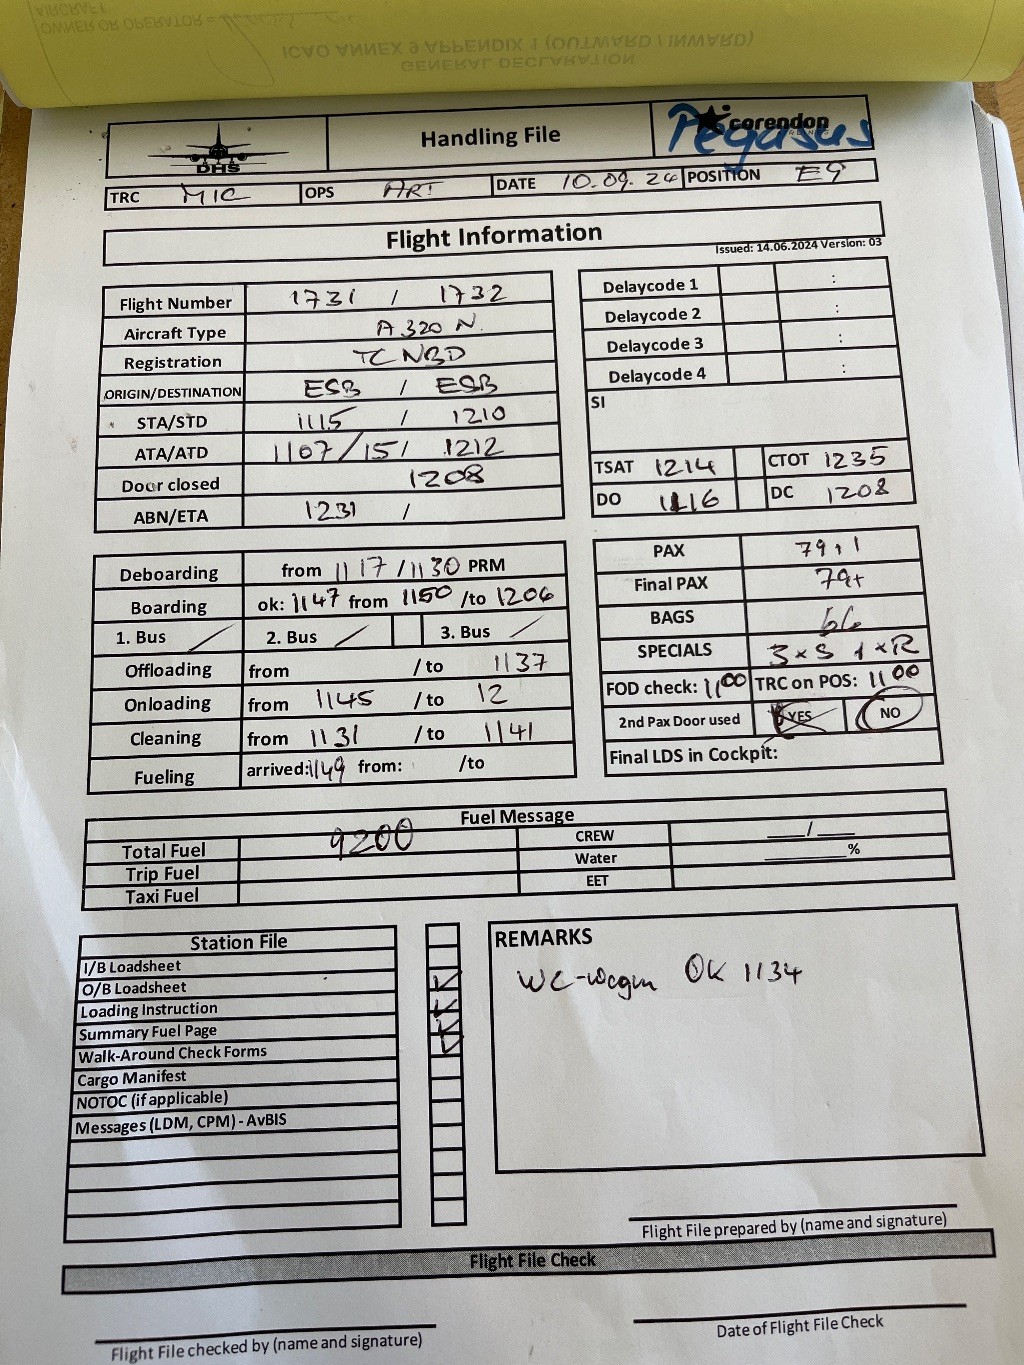 AIRCRAFT
OWNER OR OPERATOR =
ICAO ANNEX 9 APPENDIX 1 (OUTWARD / INWARD)
GENERAL DECLARATION
DHS
Handling File
corendon AIRLINES
Pegasus
TRC MIC OPS ART DATE 10.09.24 POSITION E9
Flight Information
Issued: 14.06.2024 Version: 03
Flight Number 1731 / 1732
Aircraft Type A320N
Registration TCNBD
ORIGIN/DESTINATION ESB / ESB
STA/STD 1115 / 1210
ATA/ATD 1107/15 / 1212
Door closed 1208
ABN/ETA 1231 /
Delaycode 1 :
Delaycode 2 :
Delaycode 3 :
Delaycode 4 :
SI
TSAT 1214 CTOT 1235
DO 1116 DC 1208
Deboarding from 1117 / 1130 PRM
Boarding ok: 1147 from 1150 /to 1206
1. Bus / 2. Bus / 3. Bus /
Offloading from /to 1137
Onloading from 1145 /to 12
Cleaning from 1131 /to 1141
Fueling arrived: 1149 from: /to
PAX 79+1
Final PAX 79+
BAGS 66
SPECIALS 3xS 1xR
FOD check: 1100 TRC on POS: 1100
2nd Pax Door used YES NO
Final LDS in Cockpit:
Fuel Message
Total Fuel 9200 CREW ___/___
Trip Fuel Water ______%
Taxi Fuel EET
Station File
I/B Loadsheet
O/B Loadsheet
Loading Instruction
Summary Fuel Page
Walk-Around Check Forms
Cargo Manifest
NOTOC (if applicable)
Messages (LDM, CPM) - AvBIS
REMARKS
WC-wagen OK 1134
Flight File prepared by (name and signature)
Flight File Check
Flight File checked by (name and signature)
Date of Flight File Check